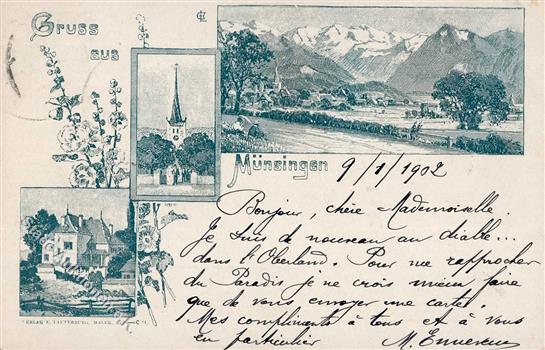 Gruss
aus
Münsingen
9/1/1902
Bonjour, chère Mademoiselle.
Je suis de nouveau au diable...
dans l'Oberland. Pour me rapprocher
du Paradis je ne crois mieux faire
que de vous envoyer une carte.
Mes compliments à tous et à vous
en particulier
VERLAG E. LAUTERBURG, MALER,